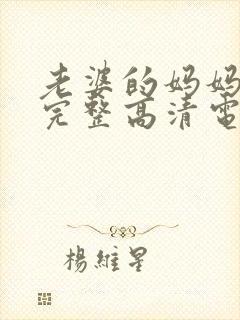 老婆的妈妈
完整高清電
楊維星